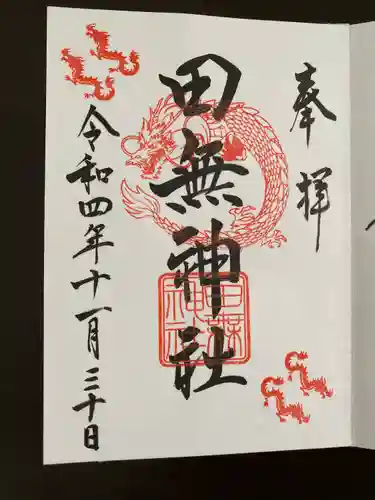 奉拝
田無神社
田無神社
令和四年十一月三十日